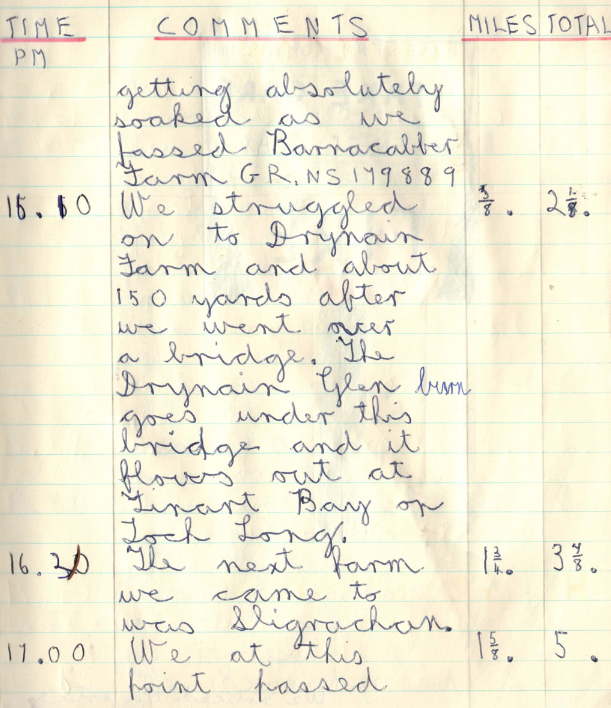 TIME COMMENTS MILES TOTAL
PM
getting absolutely
soaked as we
passed Barnacabber
Farm GR. NS 179889
We struggled 2 1/8.
on to Drynain
Farm and about
150 yards after
we went over
a bridge. The
Drynain Glen burn
goes under this
bridge and it
flows out at
Finart Bay on
Loch Long.
16.30 The next farm 1 3/4. 3 4/8.
we came to
was Sligrachan.
17.00 We at this 1 5/8. 5.
point passed